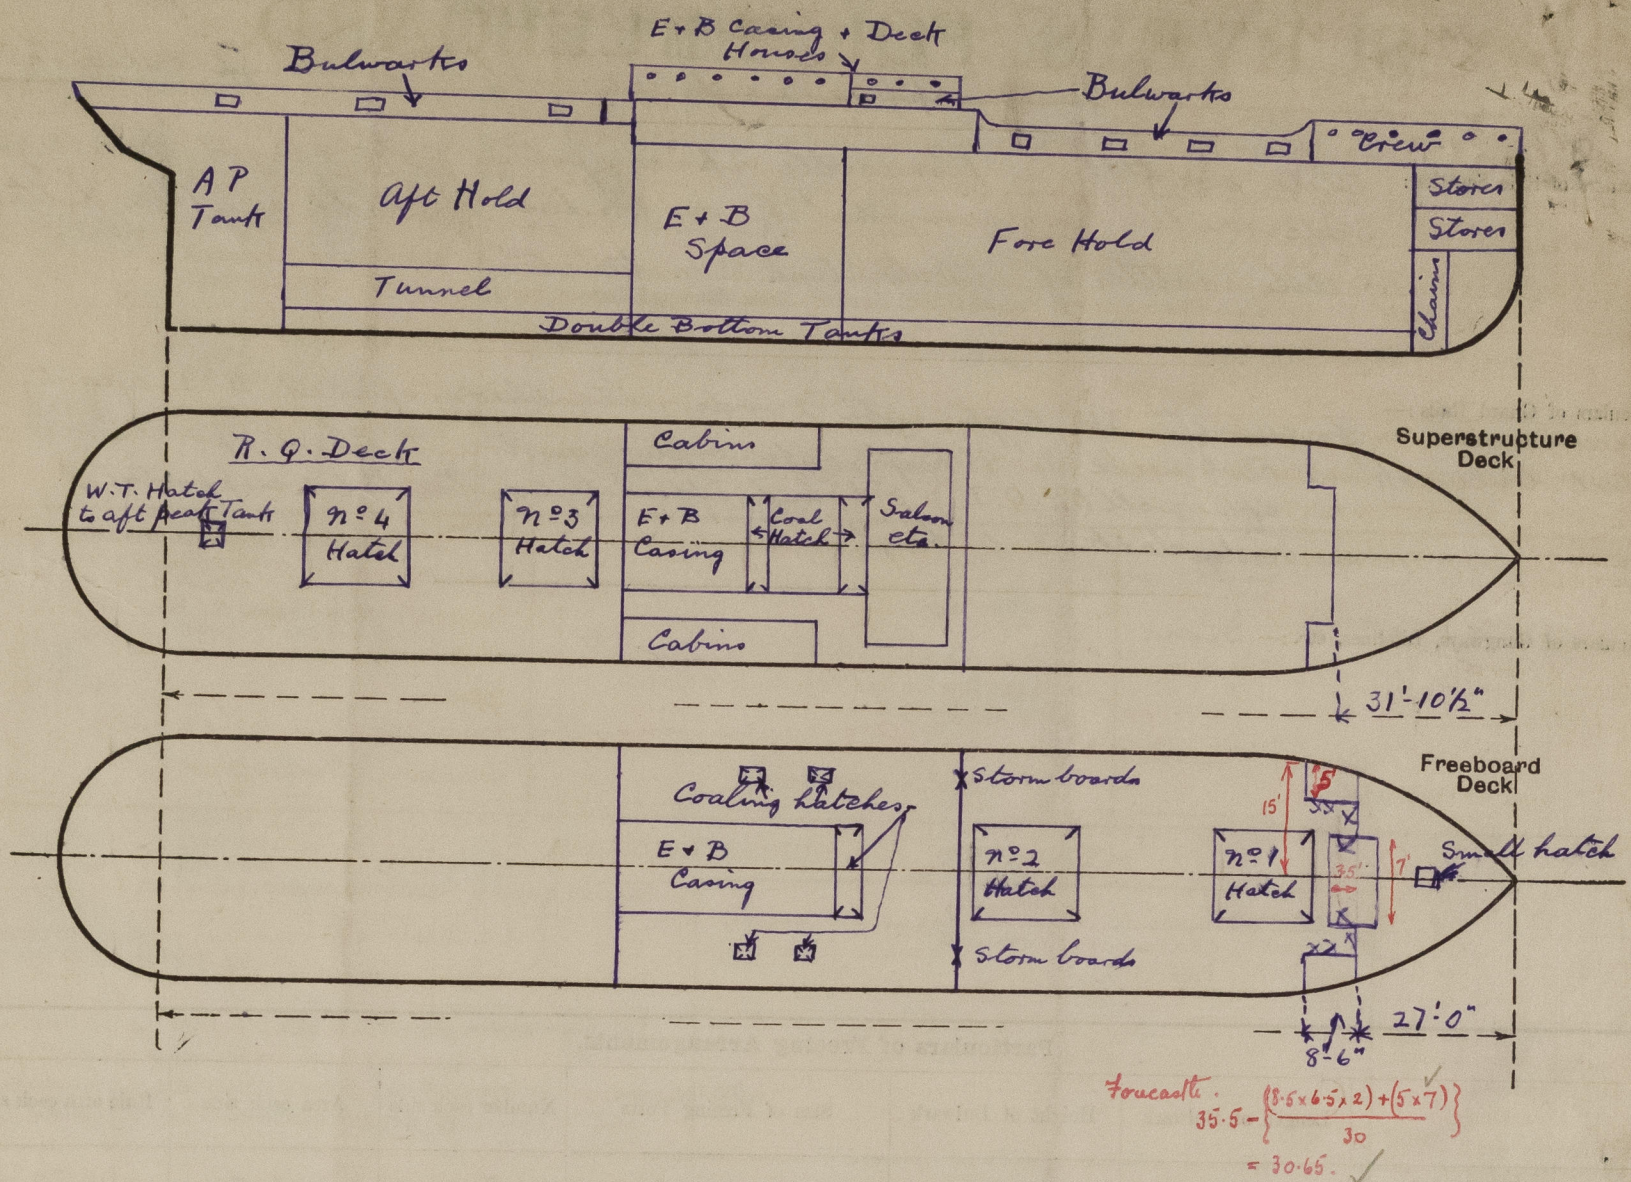 E + B Casing + Deck
Houses
Bulwarks
Bulwarks
Crew
A P
Tank
Aft Hold
E + B
Space
Fore Hold
Stores
Stores
Chains
Tunnel
Double Bottom Tanks
Superstructure
Deck
R. Q. Deck
Cabins
W.T. Hatch
to aft peak Tank
No 4
Hatch
No 3
Hatch
E + B
Casing
Coal
Hatch
Saloon
etc.
Cabins
31'-10½"
Freeboard
Deck
Storm boards
Coaling hatches
5'
15'
E + B
Casing
No 2
Hatch
No 1
Hatch
3.5'
7'
Small hatch
Storm boards
27'-0"
8'-6"
Forecastle.
35.5 - {(8.5 x 6.5 x 2) + (5 x 7)}
30
= 30.65.